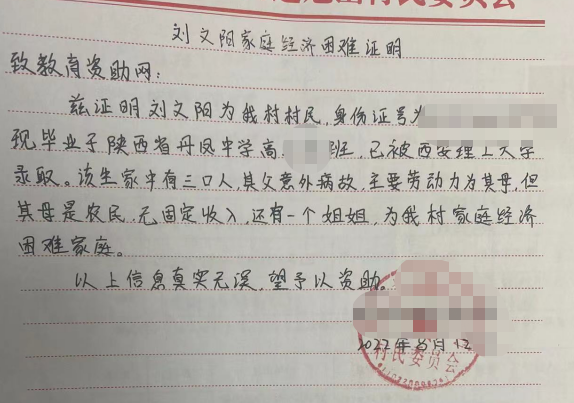 村民委员会
刘文阳家庭经济困难证明
致教育资助网：
兹证明刘文阳为我村村民，身份证号为
现毕业于陕西省丹凤中学高 班，已被西安理工大学
录取。该生家中有三口人，其父意外病故，主要劳动力为其母，但
其母是农民，无固定收入，还有一个姐姐，为我村家庭经济
困难家庭。
以上信息真实无误，望予以资助。
2022年8月12
村民委员会